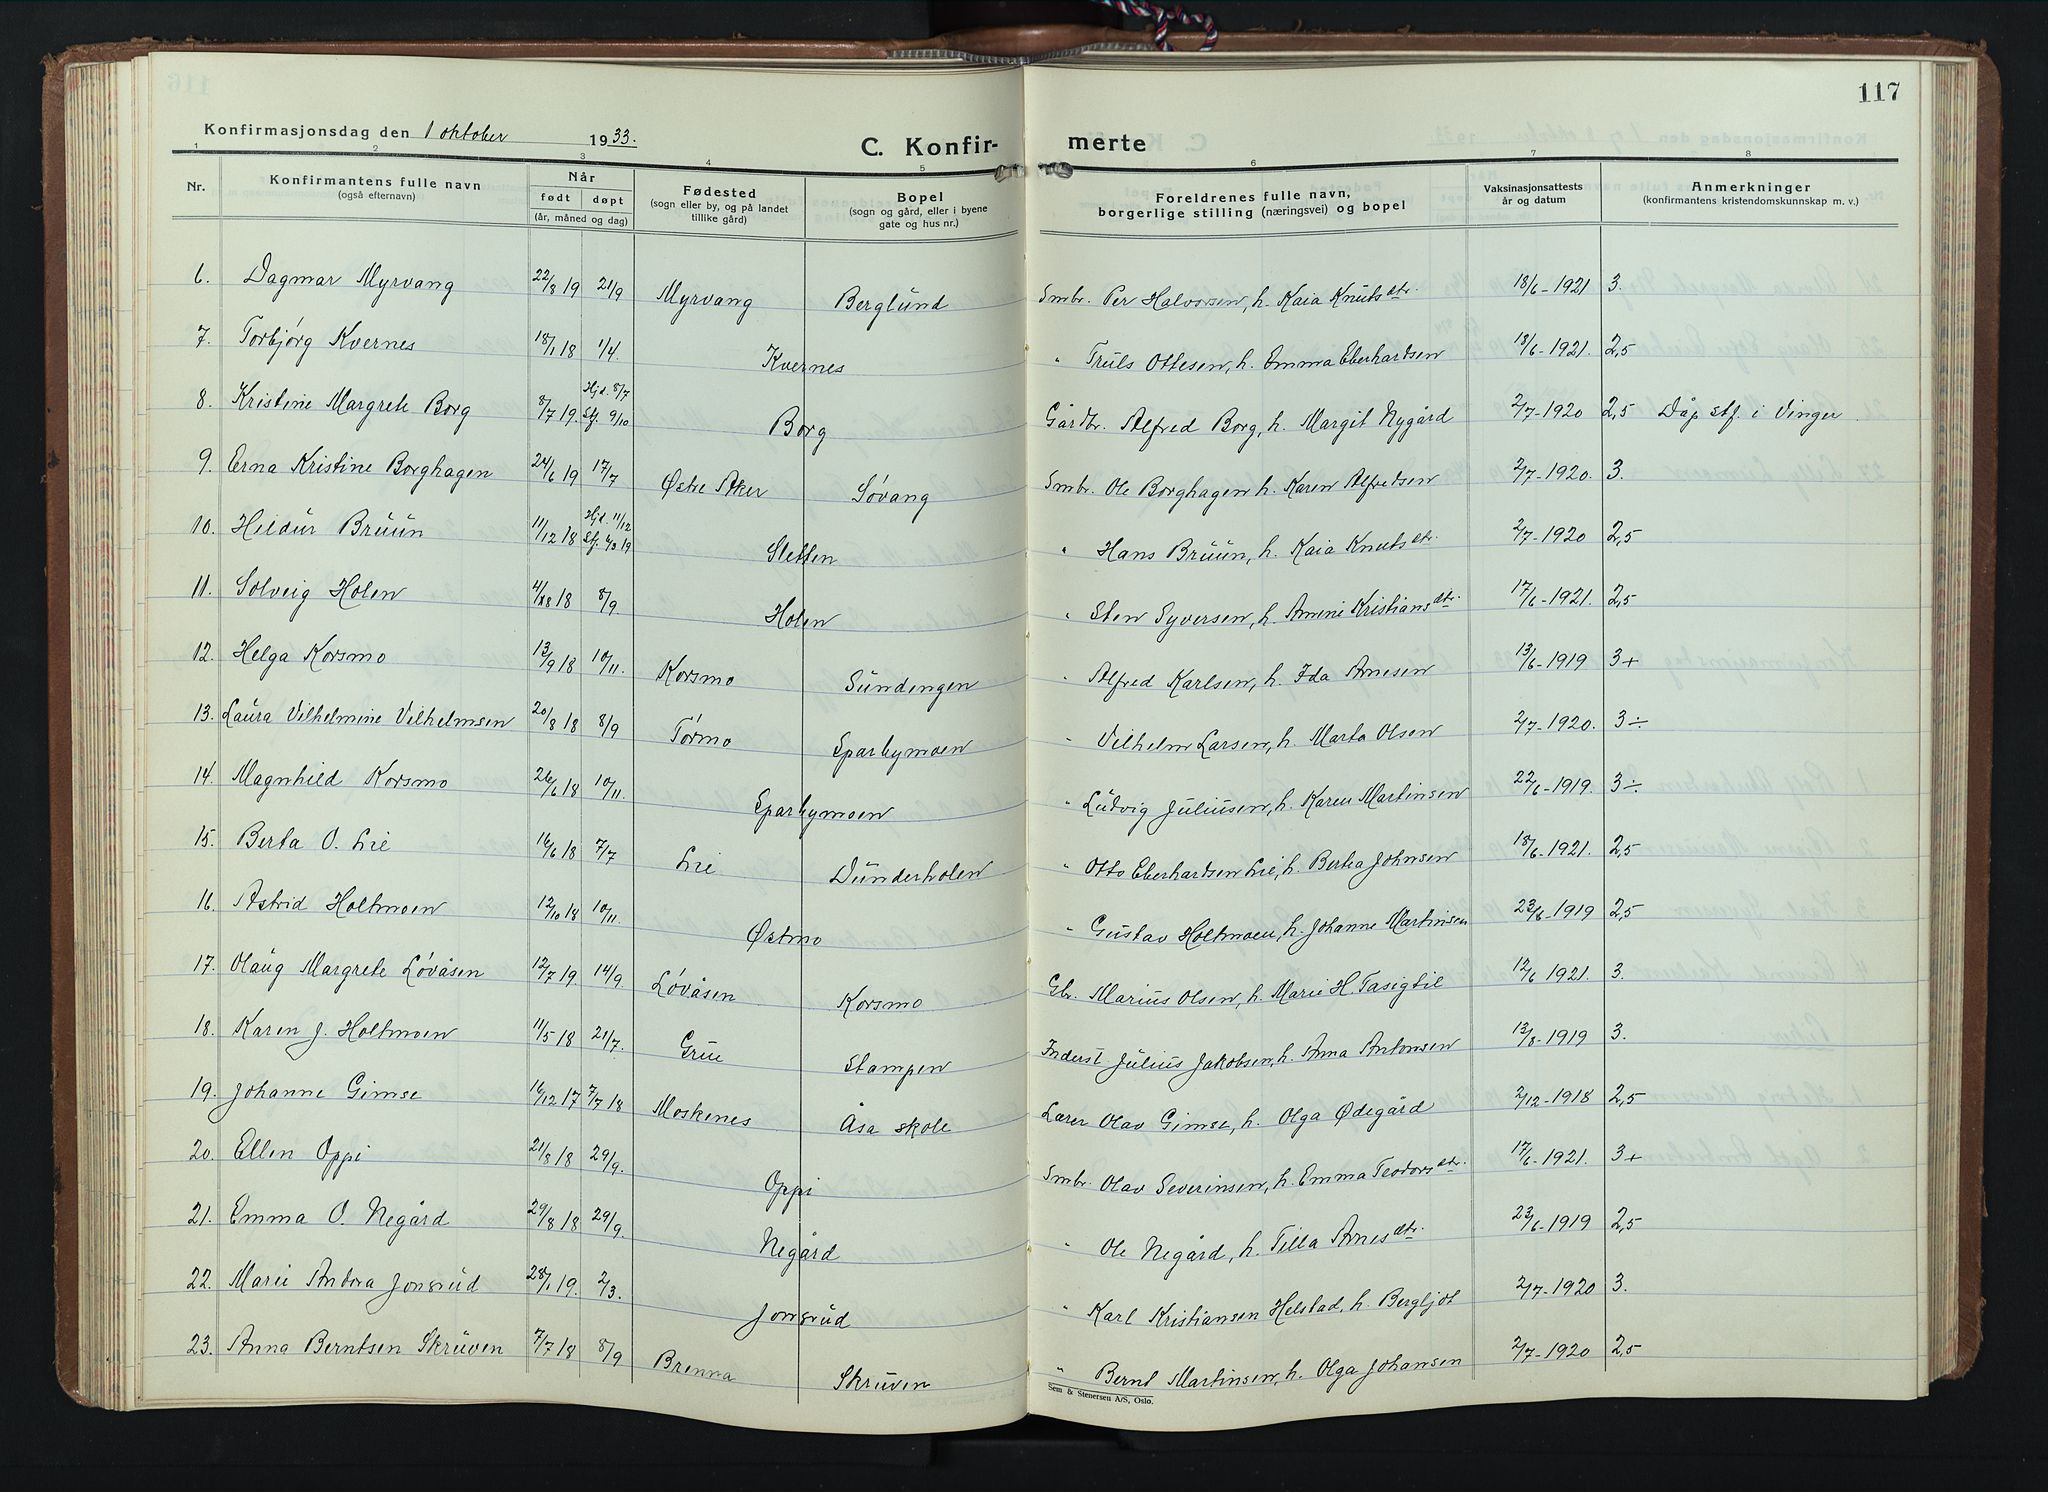 117
Konfirmasjonsdag den 1 oktober 1933.
C. Konfir- merte
1 2 3 4 5 6 7 8
Nr. Konfirmantens fulle navn (også efternavn) Når født døpt (år, måned og dag) Fødested (sogn eller by, og på landet tillike gård) Bopel (sogn og gård, eller i byene gate og hus nr.) Foreldrenes fulle navn, borgerlige stilling (næringsvei) og bopel Vaksinasjonsattests år og datum Anmerkninger (konfirmantens kristendomskunnskap m. v.)
6. Dagmar Myrvang 22/8 19 21/9 Myrvang Berglund Smbr. Per Halvorsen, h. Kaia Knutsdtr. 18/6-1921 3.
7. Torbjørg Kvernes 18/1 18 1/4. Kvernes " Truls Ottesen, h. Emma Eberhardsen 18/6-1921. 2,5
8. Kristine Margrete Borg 8/7 19. Hjd. 8/7 Stf. 9/10 Borg Gårdbr. Alfred Borg, h. Margit Nygård 2/7-1920 2,5 Dåp stf. i Vinger
9. Erna Kristine Borghagen 24/6 19 17/7 Østre Aker Søvang Smbr. Ole Borghagen h. Karen Alfredsen 2/7-1920. 3.
10. Hildur Bruun 11/12 18 Hjd. 11/12 Stf. 6/3 19 Sletten " Hans Bruun, h. Kaia Knutsdtr. 2/7-1920 2,5
11. Solveig Holen 4/8 18 8/9 Holen " Sten Syversen, h. Amine Kristiansdtr. 17/6-1921. 2,5
12. Helga Korsmo 13/9 18 10/11. Korsmo Sundengen " Alfred Karlsen, h. Ida Arnesen 13/6-1919 3+
13. Laura Vilhelmine Vilhelmsen 20/8 18 8/9 Tormo Sparbymoen " Vilhelm Larsen, h. Marta Olsen 2/7-1920. 3÷
14. Magnhild Korsmo 26/6 18 10/11. Sparbymoen " Ludvig Juliusen, h. Karen Martinsen 22/6-1919. 3÷
15. Berta O. Lie 16/6 18 7/7 Lie Dunderholen " Otto Eberhardsen Lie, h. Berta Johnsen 18/6-1921. 2,5
16. Astrid Holtmoen 12/10 18 10/11 Østmo " Gustav Holtmoen, h. Johanne Martinsen 23/6-1919 2,5
17. Olaug Margrete Løvåsen 12/7 19. 14/9 Løvåsen Korsmo Gbr. Marius Olsen, h. Marie H. Tasigtil 12/6 1921. 3.
18. Karen J. Holtmoen 11/5 18 21/7. Grue Stampen Inderst Julius Jakobsen, h. Anna Antonsen 13/8-1919 3.
19. Johanne Gimse 16/12 17 7/7 18 Moskenes Åsa skole Lærer Olav Gimse, h. Olga Ødegård 2/12-1918 2,5
20. Ellen Oppi 21/8 18 29/9. Oppi Smbr. Olav Severinsen, h. Emma Teodorsdtr. 17/6-1921. 3+
21. Emma O. Negård 29/8 18 29/9. Negård " Ole Negård, h. Tilla Arnesdtr. 23/6-1919 2,5
22. Marie Andora Jonsrud 28/1 19. 2/3. Jonsrud " Karl Kristiansen Helstad, h. Bergljot 2/7-1920 3.
23. Anna Berntsen Skruven 7/7 18 8/9 Brenna Skruven " Bernt Martinsen, h. Olga Johansen 2/7-1920 2,5
Sem & Stenersen A/S, Oslo.